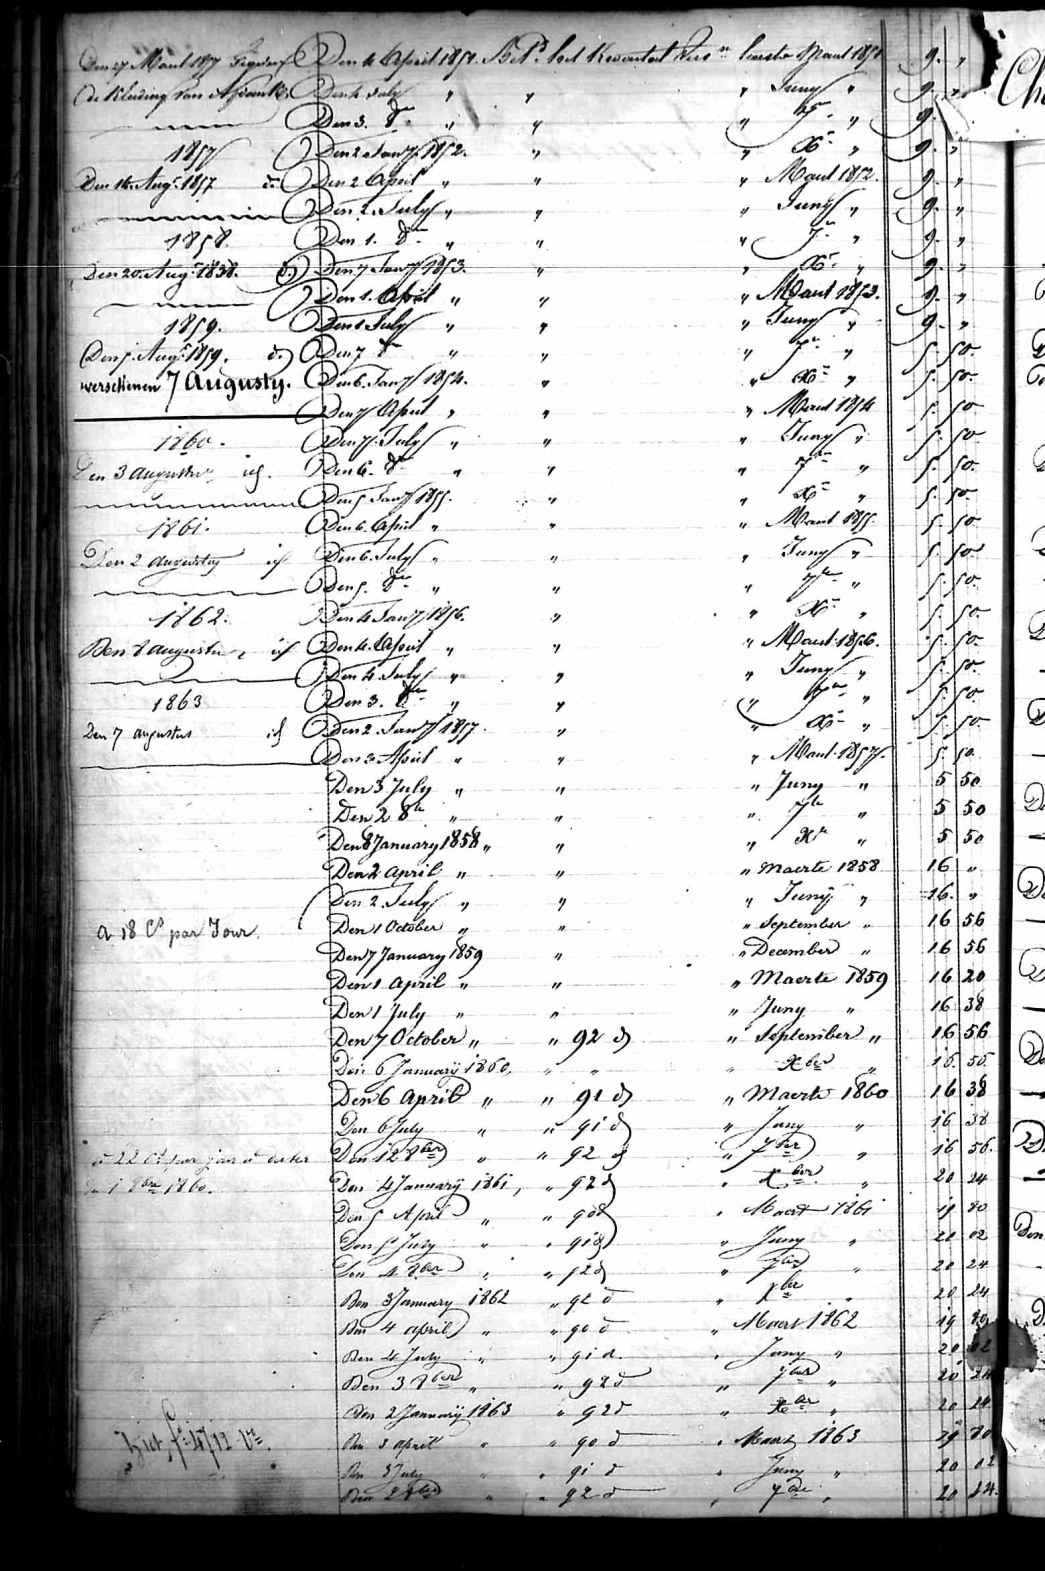 Den 4 April 1851. Bet.d het Kwartaal Maart 1851 9. "
Den 4 July " " " Juny " 9. "
Den 3. 8re " " " 7re " 9. "
1857 Den 2 Jany 1852. " " Xre " 9. "
Den 14 Augs 1857 d. Den 2 April " " " Maart 1852. 9. "
Den 2. July " " " Juny " 9. "
1858. Den 1. 8re " " " 7re " 9. "
Den 20. Augs 1858. d. Den 7 Jany 1853. " " Xre " 9. "
Den 1. April " " " Maart 1853. 9. "
1859. Den 1 July " " " Juny " 9. "
Den 5. Augs 1859. d. Den 7 8re " " " 7re " 5. 50.
verschenen 7 Augusty. Den 6. Jany 1854. " " Xre " 5. 50.
Den 7 April " " " Maart 1854 5. 50
1860. Den 7 July " " " Juny " 5. 50
Den 3 augustus id. Den 6. 8re " " " 7re " 5. 50.
Den 5 Jany 1855. " " Xre " 5. 50.
1861. Den 6. April " " " Maart 1855. 5. 50
Den 2 augustus id Den 6. July " " " Juny " 5. 50
Den 5. 8re " " " 7re " 5. 50.
1862. Den 4 Jany 1856. " " Xre " 5. 50
Den 8 augustus id Den 4. April " " " Maart 1856. 5. 50.
Den 4 July " " " Juny " 5. 50.
1863 Den 3. 8re " " " 7re " 5. 50.
Den 7 augustus id Den 2. Jany 1857. " " Xre " 5. 50
Den 3 April " " " Maart 1857. 5. 50.
Den 3 July " " " Juny " 5 50
Den 2 8re " " " 7re " 5 50
Den 8 January 1858 " " " Xre " 5 50
Den 2 April " " " Maerte 1858 16 "
Den 2. July " " " Juny " 16. "
a 18 Cs par Jour. Den 1 October " " " September " 16 56
Den 7 January 1859 " " December " 16 56
Den 1 April " " " Maerte 1859 16 20
Den 1 July " " " Juny " 16 38
Den 7 October " " 92 d " September " 16 56
Den 6 January 1860, " " " Xber " 16. 56.
Den 6 April " " 91 d " Maerte 1860 16 38
Den 6 July " " 91 d " Juny " 16 38
à 22 Cs par jour à dater Den 12 8bre " " 92 d " 7ber " 16 56.
du 1 8bre 1860. Den 4 January 1861, " 92 d " Xber " 20 24
Den 5 April " " 90 d " Maert 1861 19 80
Den 5 July " " 91 d " Juny " 20 02
Den 4 8ber " " 92 d " 7ber " 20 24
Den 3 January 1862 " 92 d " Xbre " 20 24
Den 4 april " " 90 d " Maert 1862 19 80
Den 4 July " " 91 d. " Juny " 20 02
Den 3 8ber " " 92 d " 7ber " 20 24
Den 2 January 1863 " 92 d " Xber " 20 24.
Den 3 april " " 90 d " Maert 1863 19 80
Den 3 July " " 91 d " Juny " 20 02
Den 2 8ber " " 92 d " 7bre " 20 24.